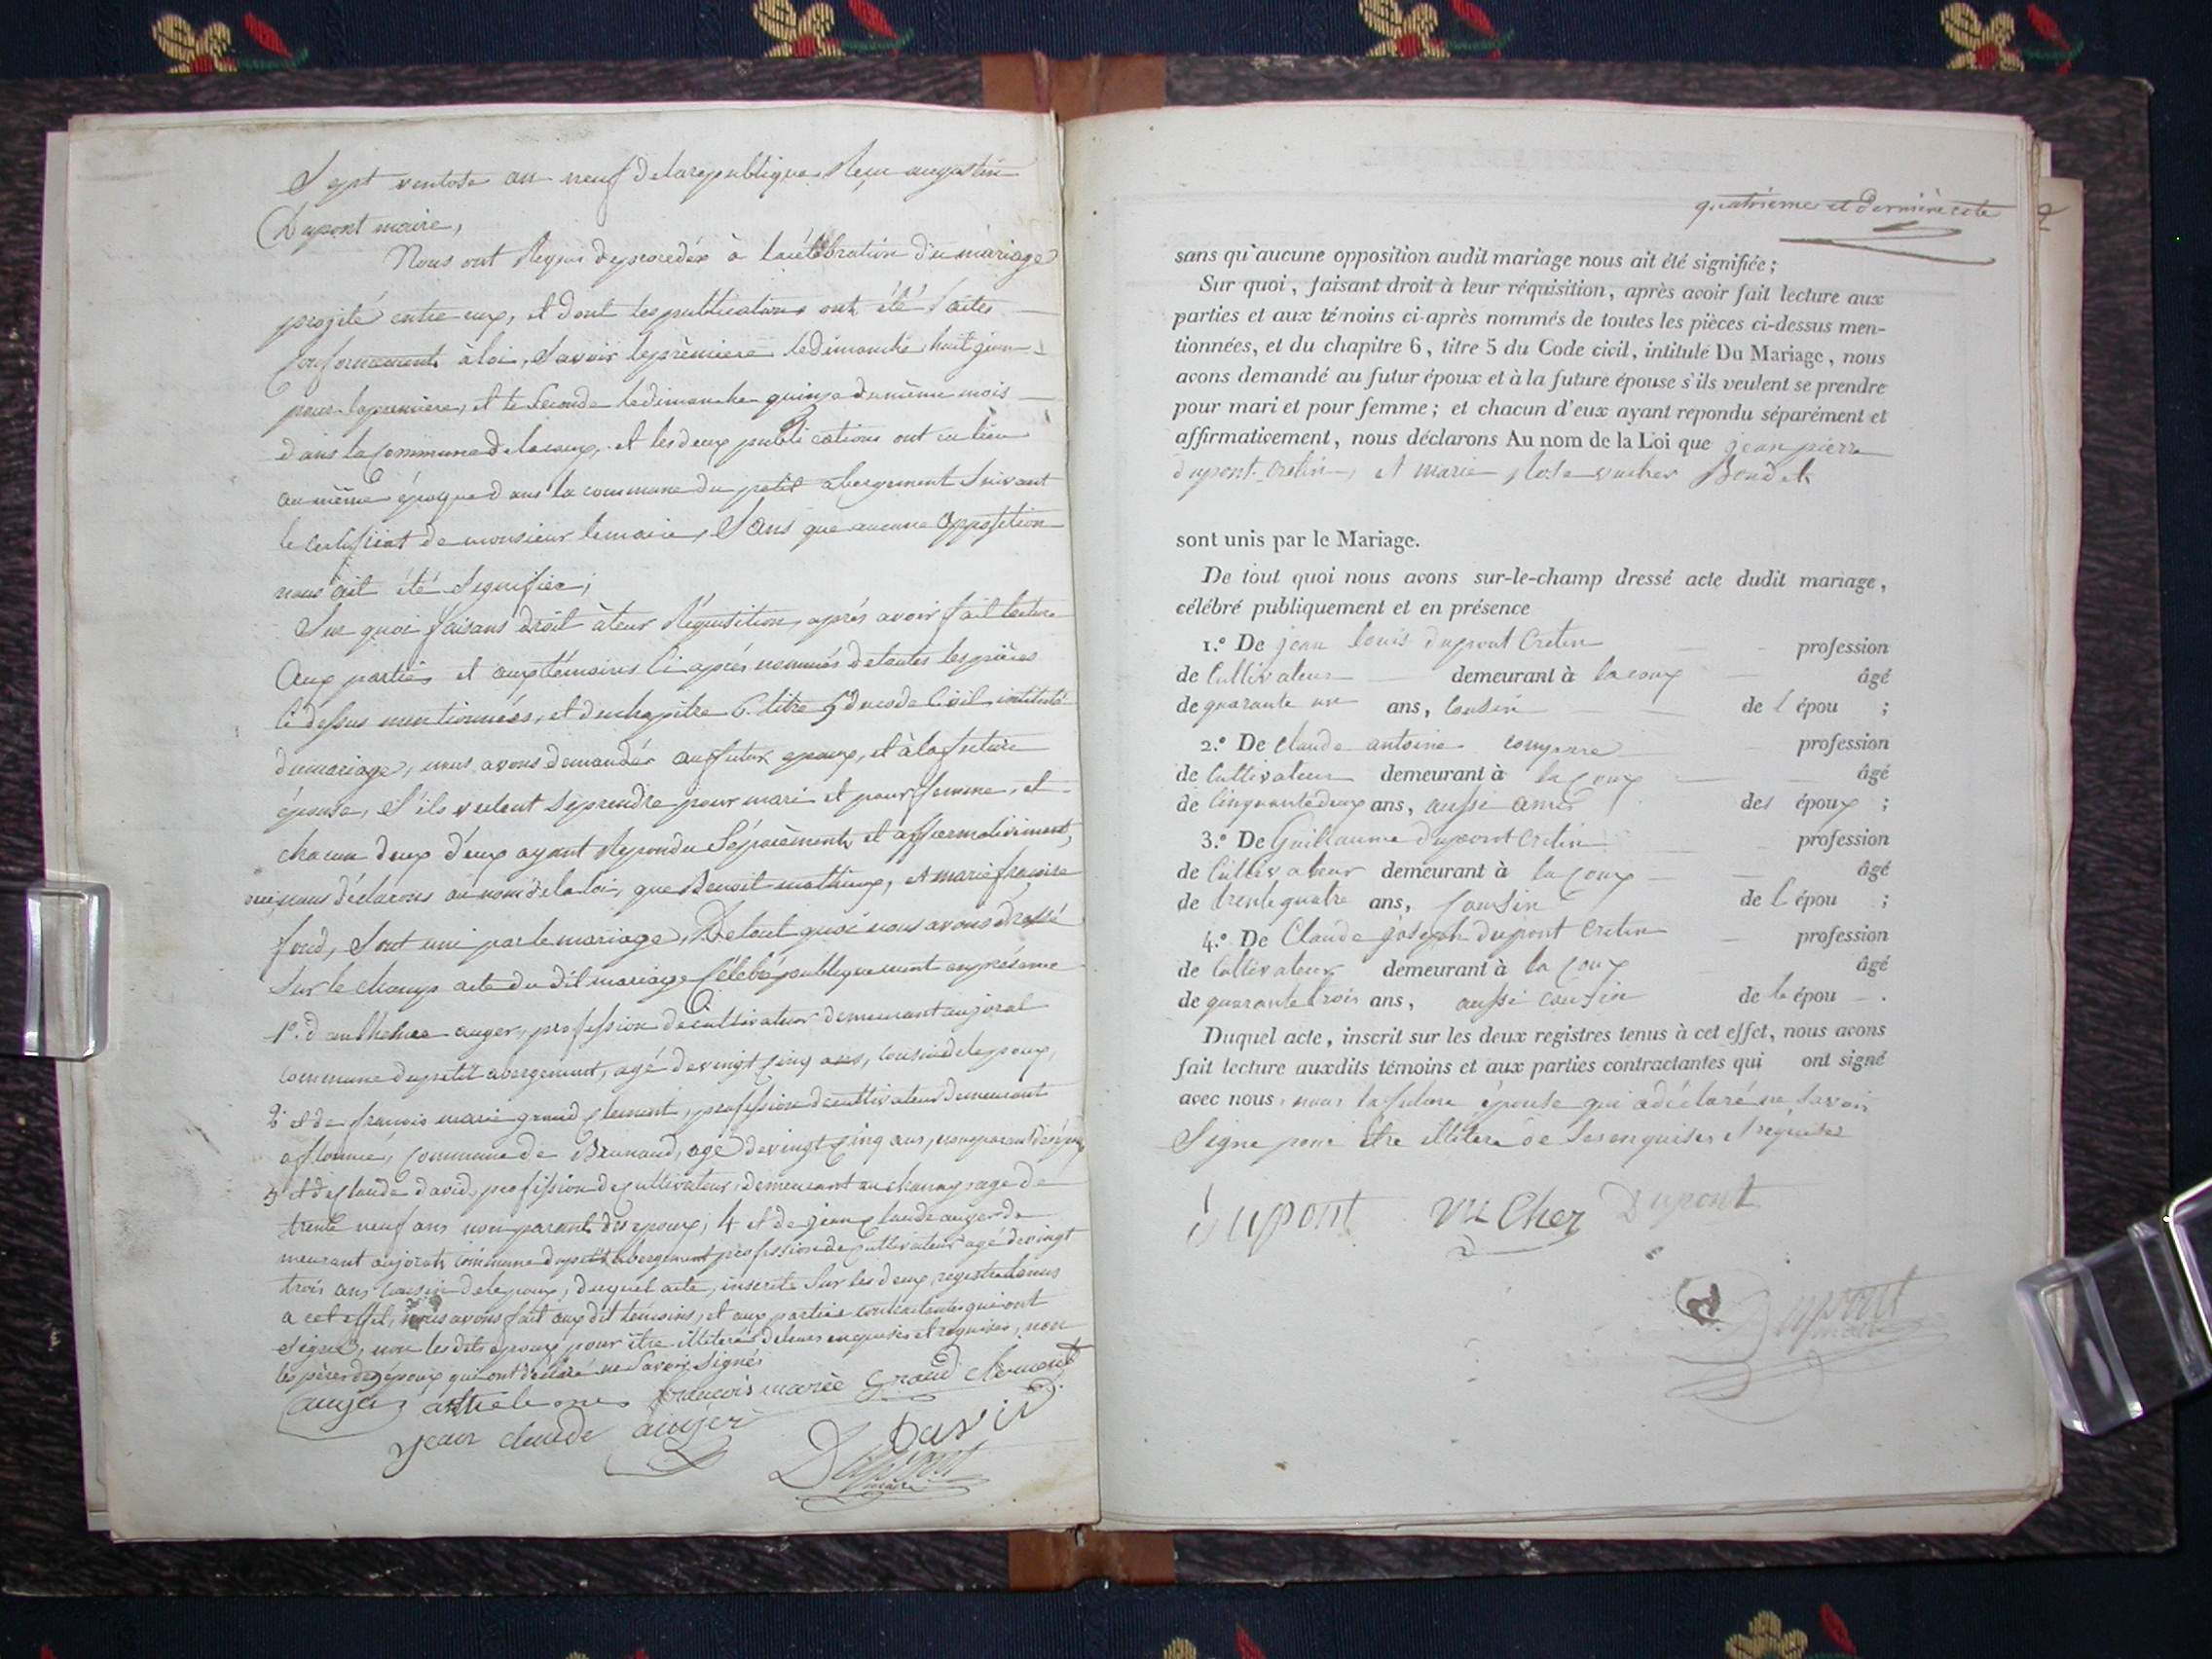 Sept ventose an neuf de la republique Reçu augustin
Dupont maire,
Nous ont Requis de procedér à la célébration du mariage
projeté entre eux, et dont les publications ont été faites
Conformement à loi, Savoir la prèmiere le dimanche huit juin
pour la premiere, et le Seconde le dimanche quinze du même mois
dans la Commune de lacoux, et les deux publications ont eu lieu
au même époque dans la commune du petit abergement Suivant
le certificat de monsieur le maire, Sans que aucune opposition
nous ait été Signifiéé;
Sur quoi faisans droit à leur Réquisition, après avoir fait lecture
Aux partiés et aux témoins Ci après nommés de toutes les pièces
Ci dessus mentionnéés, et du chapitre 6. titre 5 du code Civil intitulé
du mariage, nous avons demandés au futur epoux, et à la future
épouse, S'ils veulent Se prendre pour mari et pour femme, et
chacun deux d'eux ayant Repondu Séparément et affirmativement,
nous déclarons au nom de la loi, que Benoit mathieux, et marie françoise
fond, Sont uni par le mariage, De tout quoi nous avons dressé
Sur le champ acte du dit mariage Célébré publiquement en présence
1º. d'anthelme auger, profession de cultivateur demeurant au jorat
commune du petit abergement, agé de vingt cinq ans, cousin de l'epoux,
2º et de françois marie grand clement, profession de cultivateur demeurant
commune de Brenaud, agé de vingt cinq ans, non parent des époux
3º et de claude david, profession de cultivateur, demeurant au champ sage de
trente neuf ans non parent des epoux; 4 et de jean claude auger de
meurant au jorat, commune du petit abergement profession de cultivateur agé de vingt
trois ans, cousin de l'epoux, duquel acte, inscrite Sur les deux registre tenus
a cet effet, nous avons fait aux dit témoins, et aux parties contractantes qui ont
Signé, non les dits epoux pour être illiteré de leurs enquises et requises, non
les pères des époux qui ont déclaré ne Savoir Signés
auger anthelme françois marie Grand clement
jean claude auger David
Dupont
maire
quatrieme et dernière cote
sans qu'aucune opposition audit mariage nous ait été signifiée;
Sur quoi, faisant droit à leur réquisition, après avoir fait lecture aux
parties et aux témoins ci-après nommés de toutes les pièces ci-dessus men-
tionnées, et du chapitre 6, titre 5 du Code civil, intitulé Du Mariage, nous
avons demandé au futur époux et à la future épouse s'ils veulent se prendre
pour mari et pour femme; et chacun d'eux ayant repondu séparément et
affirmativement, nous déclarons Au nom de la Loi que jean pierre
dupont-cretin, et marie Rose vucher Bondet
sont unis par le Mariage.
De tout quoi nous avons sur-le-champ dressé acte dudit mariage,
célébré publiquement et en présence
1.º De jean louis dupont Cretin profession
de Cultivateur demeurant à lacoux âgé
de quarante un ans, Cousin de l épou ;
2.º De claude antoine compare profession
de Cultivateur demeurant à la Coux âgé
de Cinquante deux ans, aussi amis des époux ;
3.º De Guillaume dupont Cretin profession
de Cultivateur demeurant à la coux âgé
de trente quatre ans, Cousin de l épou ;
4.º De Claude joseph dupont Cretin profession
de Cultivateur demeurant à la coux âgé
de quarante trois ans, aussi cousin de le épou .
Duquel acte, inscrit sur les deux registres tenus à cet effet, nous avons
fait lecture auxdits témoins et aux parties contractantes qui ont signé
avec nous. non la future épouse qui a déclaré ne Savoir
Signe pour être illiteré de Ses enquises et requises
dupont vucher Dupont
Dupont
maire